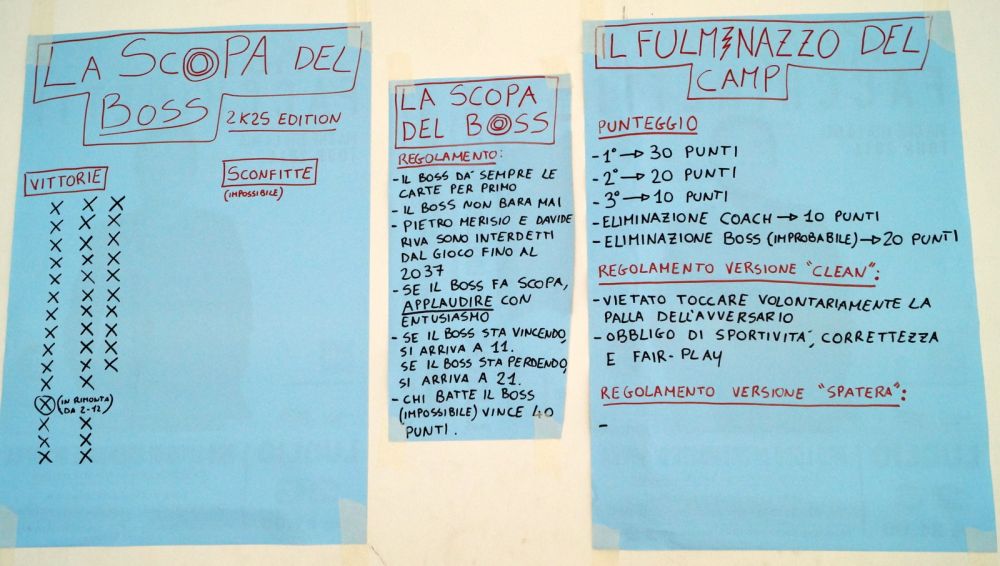 LA SCOPA DEL
BOSS 2K25 EDITION
VITTORIE
SCONFITTE
(IMPOSSIBILE)
X X X
X X X
X X X
X X X
X X X
X X X
X X X
X X X
X X X
X X
X (IN RIMONTA
DA 2-12)
X X
X X
X X
LA SCOPA
DEL BOSS
REGOLAMENTO:
- IL BOSS DA' SEMPRE LE
CARTE PER PRIMO
- IL BOSS NON BARA MAI
- PIETRO MERISIO E DAVIDE
RIVA SONO INTERDETTI
DAL GIOCO FINO AL
2037
- SE IL BOSS FA SCOPA,
APPLAUDIRE CON
ENTUSIASMO
- SE IL BOSS STA VINCENDO,
SI ARRIVA A 11.
SE IL BOSS STA PERDENDO,
SI ARRIVA A 21.
- CHI BATTE IL BOSS
(IMPOSSIBILE) VINCE 40
PUNTI.
IL FULMINAZZO DEL
CAMP
PUNTEGGIO
- 1° → 30 PUNTI
- 2° → 20 PUNTI
- 3° → 10 PUNTI
- ELIMINAZIONE COACH → 10 PUNTI
- ELIMINAZIONE BOSS (IMPROBABILE) → 20 PUNTI
REGOLAMENTO VERSIONE "CLEAN":
- VIETATO TOCCARE VOLONTARIAMENTE LA
PALLA DELL'AVVERSARIO
- OBBLIGO DI SPORTIVITA', CORRETTEZZA
E FAIR-PLAY
REGOLAMENTO VERSIONE "SPATERA":
-